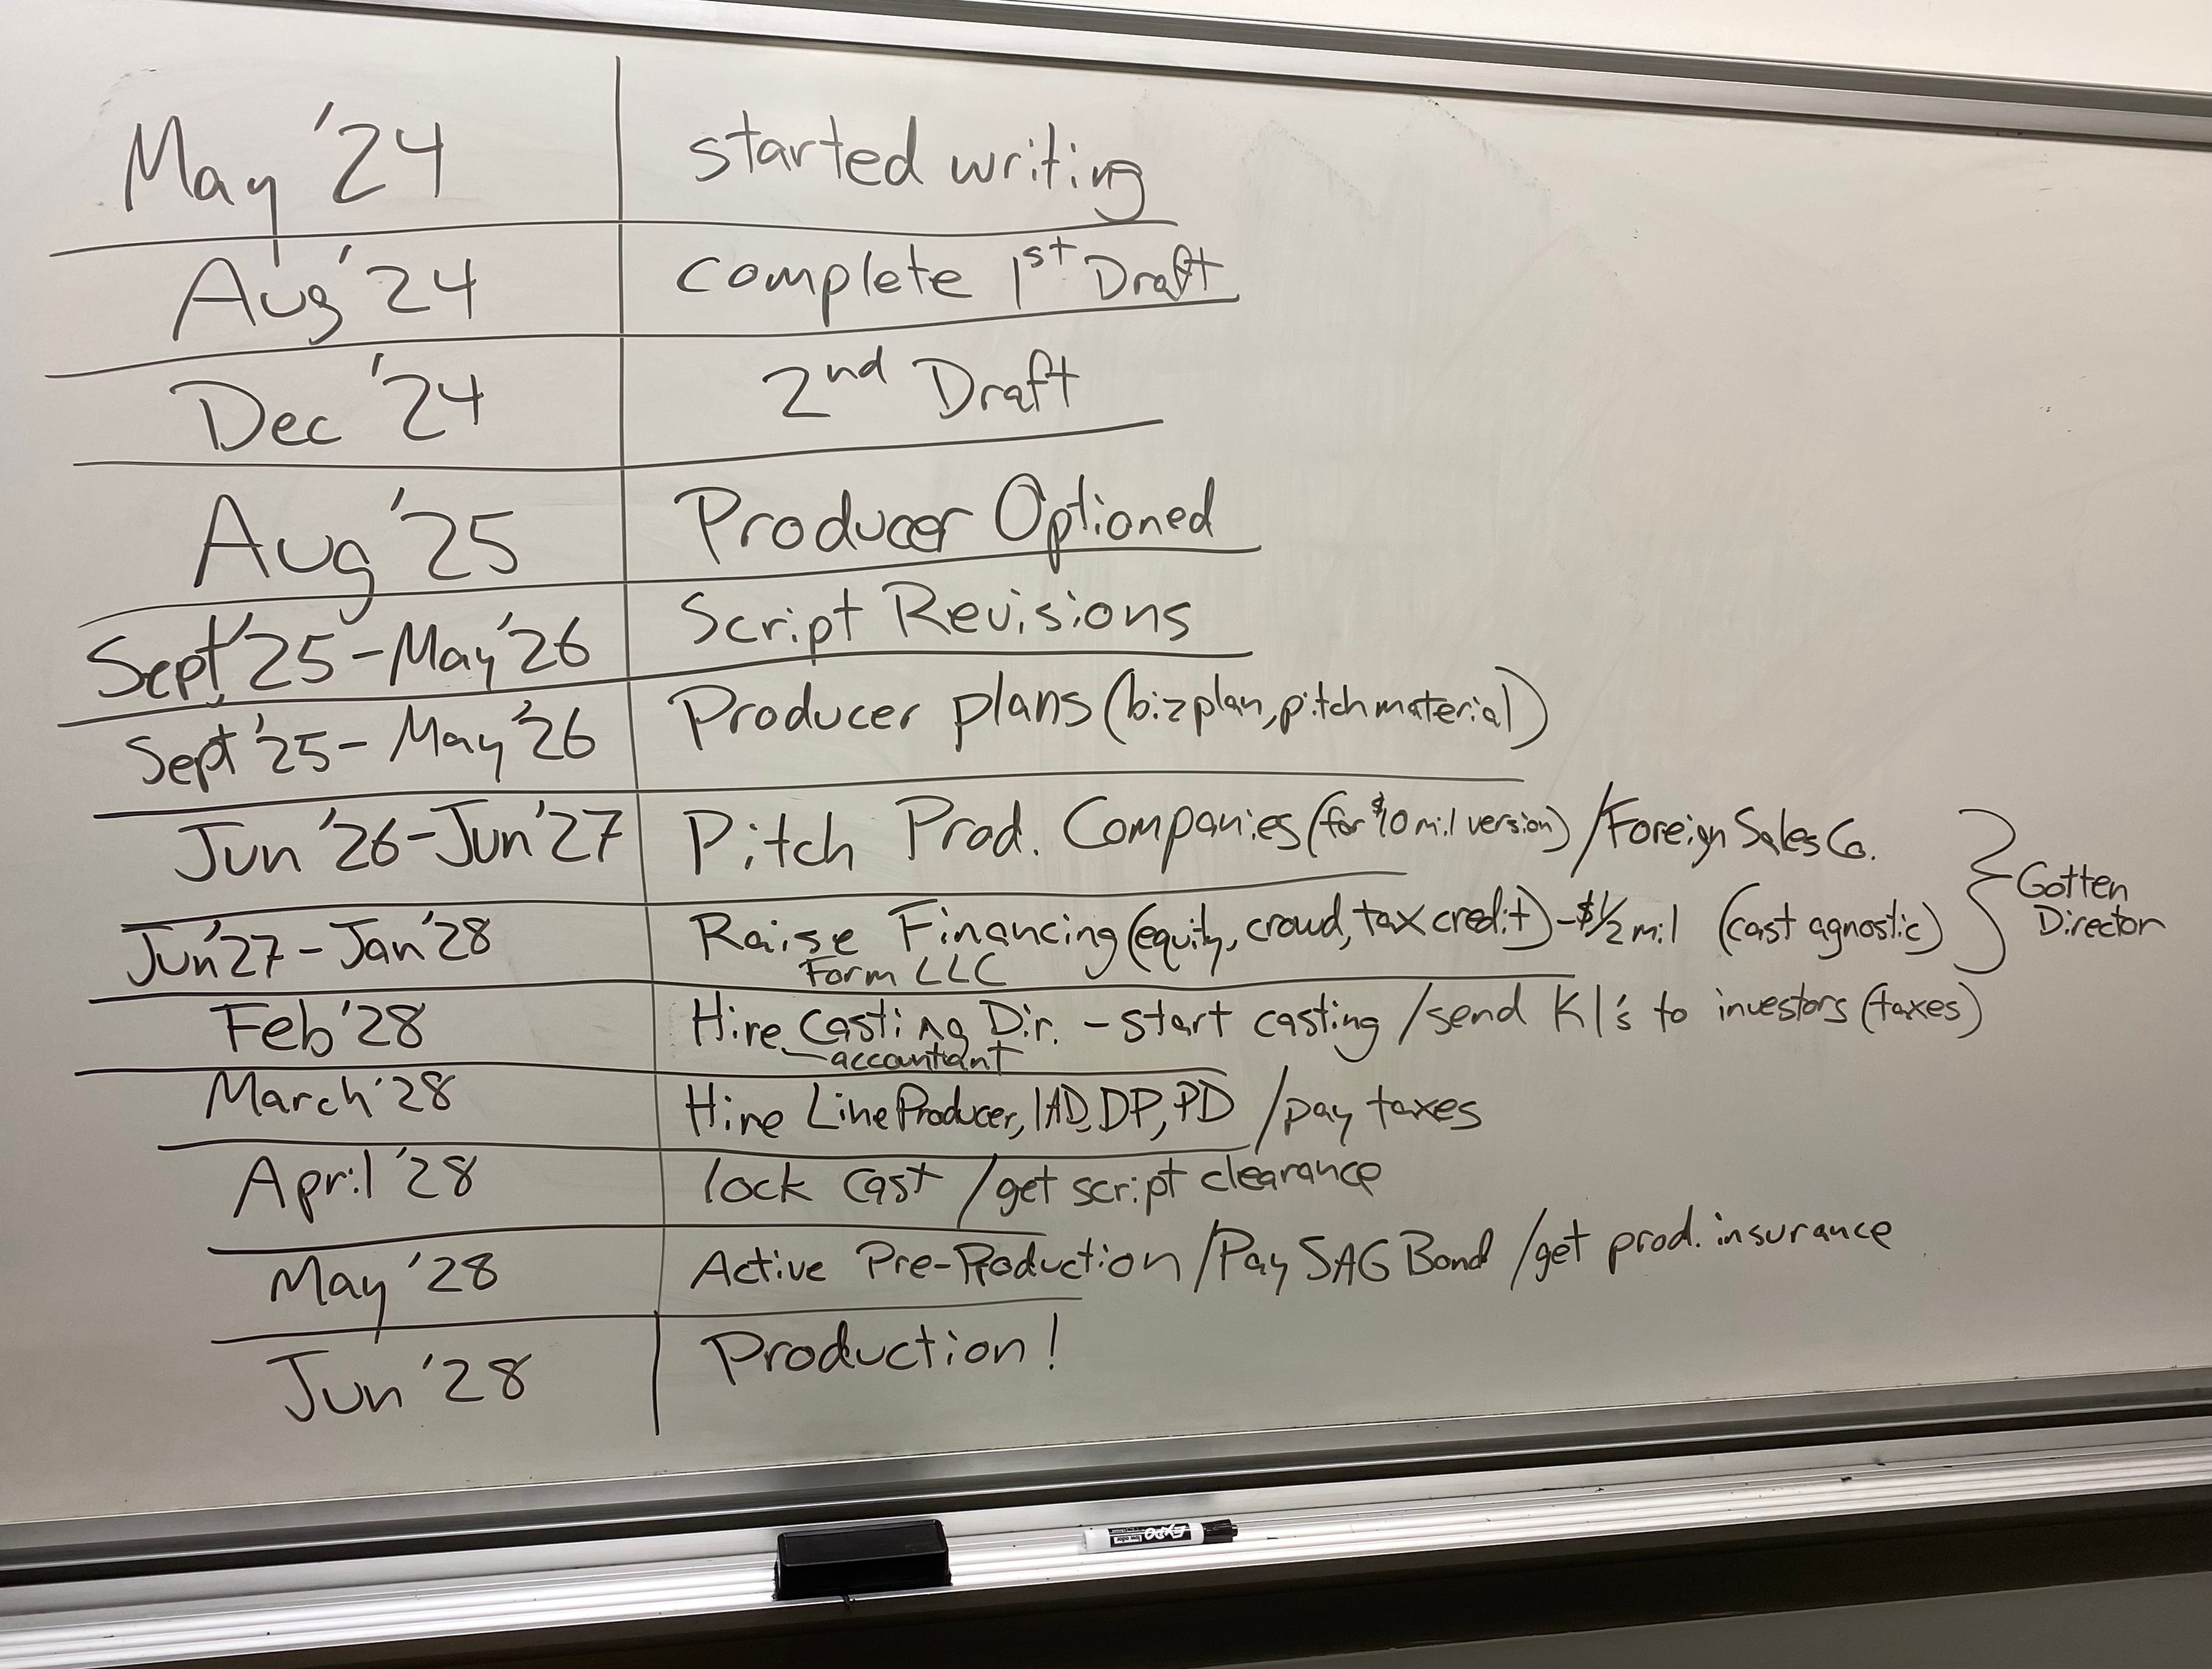 May '24 started writing
Aug '24 Complete 1st Draft
Dec '24 2nd Draft
Aug '25 Producer Optioned
Sept '25 - May '26 Script Revisions
Sept '25 - May '26 Producer plans (biz plan, pitch material)
Jun '26 - Jun '27 Pitch Prod. Companies (for $10 mil version) / Foreign Sales Co.
Jun '27 - Jan '28 Raise Financing (equity, crowd, tax credit) - $1/2 mil (cast agnostic)
Form LLC
Gotten
Director
Feb '28 Hire Casting Dir. - start casting / send K1's to investors (taxes)
- accountant
March '28 Hire Line Producer, 1AD, DP, PD / pay taxes
April '28 lock cast / get script clearance
May '28 Active Pre-Production / Pay SAG Bond / get prod. insurance
Jun '28 Production!
EXPO